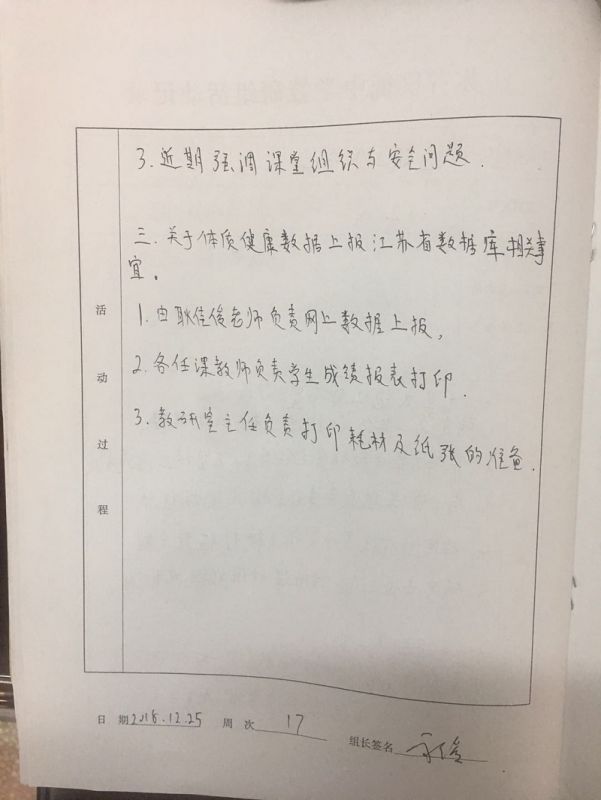 3. 近期强调课堂组织与安全问题.
三. 关于体质健康数据上报江苏省数据库相关事
宜。
1. 由耿佳俊老师负责网上数据上报,
2. 各任课教师负责学生成绩报表打印.
3. 教研室主任负责打印耗材及纸张的准备.
活
动
过
程
日 期 2018.12.25 周 次 17
组长签名